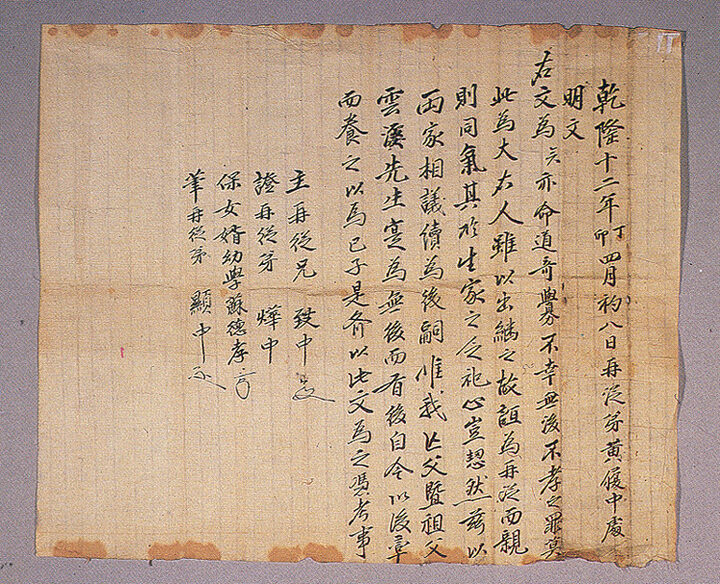 乾隆十二年丁卯四月初八日再從弟黃復中處
明文
右文為亦命道奇釁不幸無後不孝之罪莫
此為大右人雖以出繼之故誼為再從而親
則同氣其於生家之乏祀心豈恝然茲以
兩家相議續為後嗣惟我亡父曁祖父
雲溪先生寔為無後而有後自今以後率
而養之以為己子是齊以此文為之憑考事
主再從兄 致中
證再從弟 燁中
保女婿幼學蘇德孝
筆再從弟 顯中